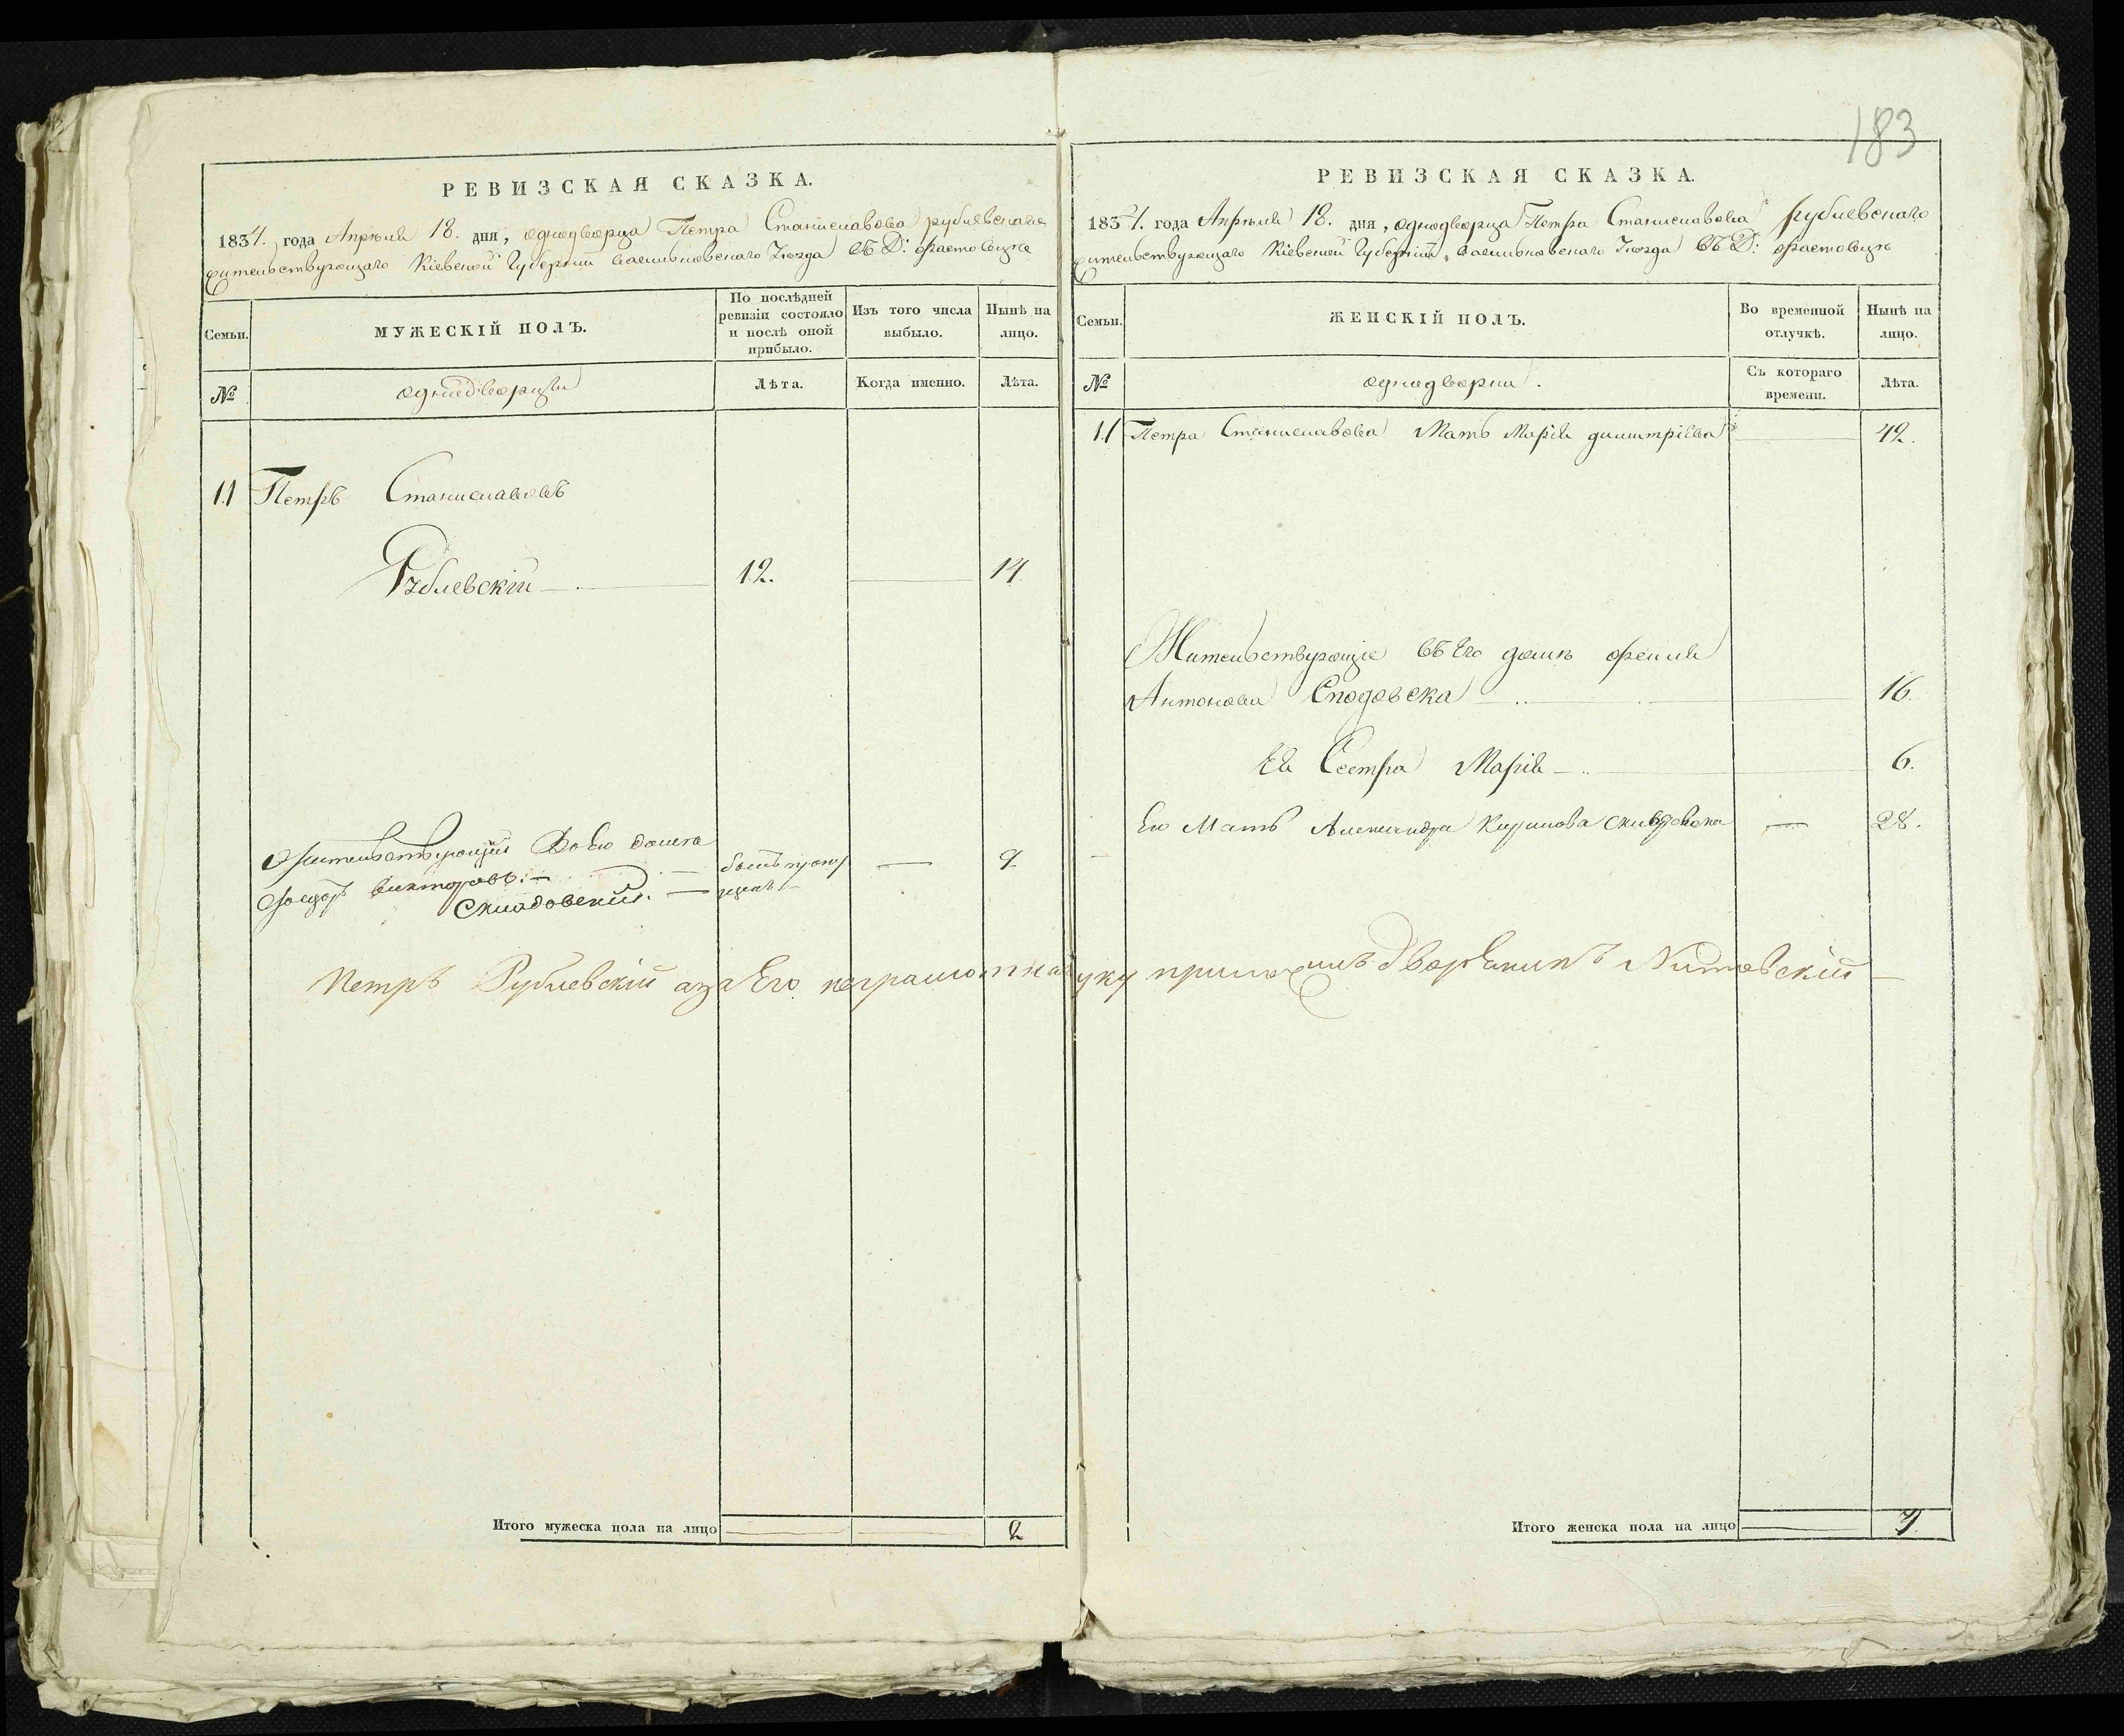 183
РЕВИЗСКАЯ СКАЗКА.
1834. года Апрѣля 18. дня, однодворца Петра Станиславова рублевскаго
жительствующаго Кіевской Губерніи васильковскаго Уѣзда въ Д: фастовцѣ
Семьи.
МУЖЕСКІЙ ПОЛЪ.
По послѣдней ревизіи состояло и послѣ оной прибыло.
Изъ того числа выбыло.
Нынѣ на лицо.
№
однодворцы
Лѣта.
Когда именно.
Лѣта.
11 Петръ Станиславовъ
Рублевскій 12. 14
Жительствующій Въ Его домѣ
викторовъ:
9
Петръ Рублевскій аза Его неграмотна руку приложилъ дворянинъ
Итого мужеска пола на лицо 2
РЕВИЗСКАЯ СКАЗКА.
1834. года Апрѣля 18. дня, однодворца Петра Станиславова рублевскаго
жительствующаго Кіевской Губерніи, васильковскаго Уѣзда въ Д: фастовцѣ
Семьи.
ЖЕНСКІЙ ПОЛЪ.
Во временной отлучкѣ.
Нынѣ на лицо.
№
однодворцы.
Съ котораго времени.
Лѣта.
11 Петра Станиславова Мать Марія димитріева 42.
Жительствующіе въ Его домѣ
Антонова 16.
Ея Сестра Марія 6.
Его Мать Александра 28.
Итого женска пола на лицо 4